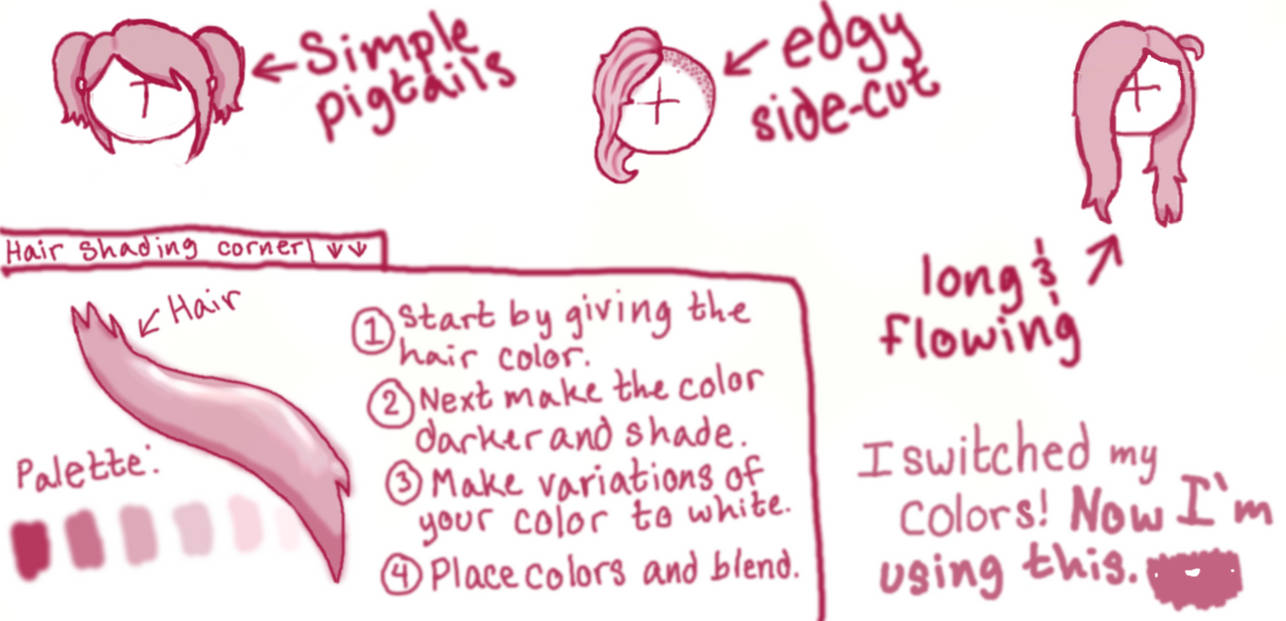 Simple
pigtails
edgy
side-cut
long &
flowing
Hair Shading corner
Hair
Palette:
① Start by giving the
hair color.
② Next make the color
darker and shade.
③ Make variations of
your color to white.
④ Place colors and blend.
I switched my
colors! Now I'm
using this.